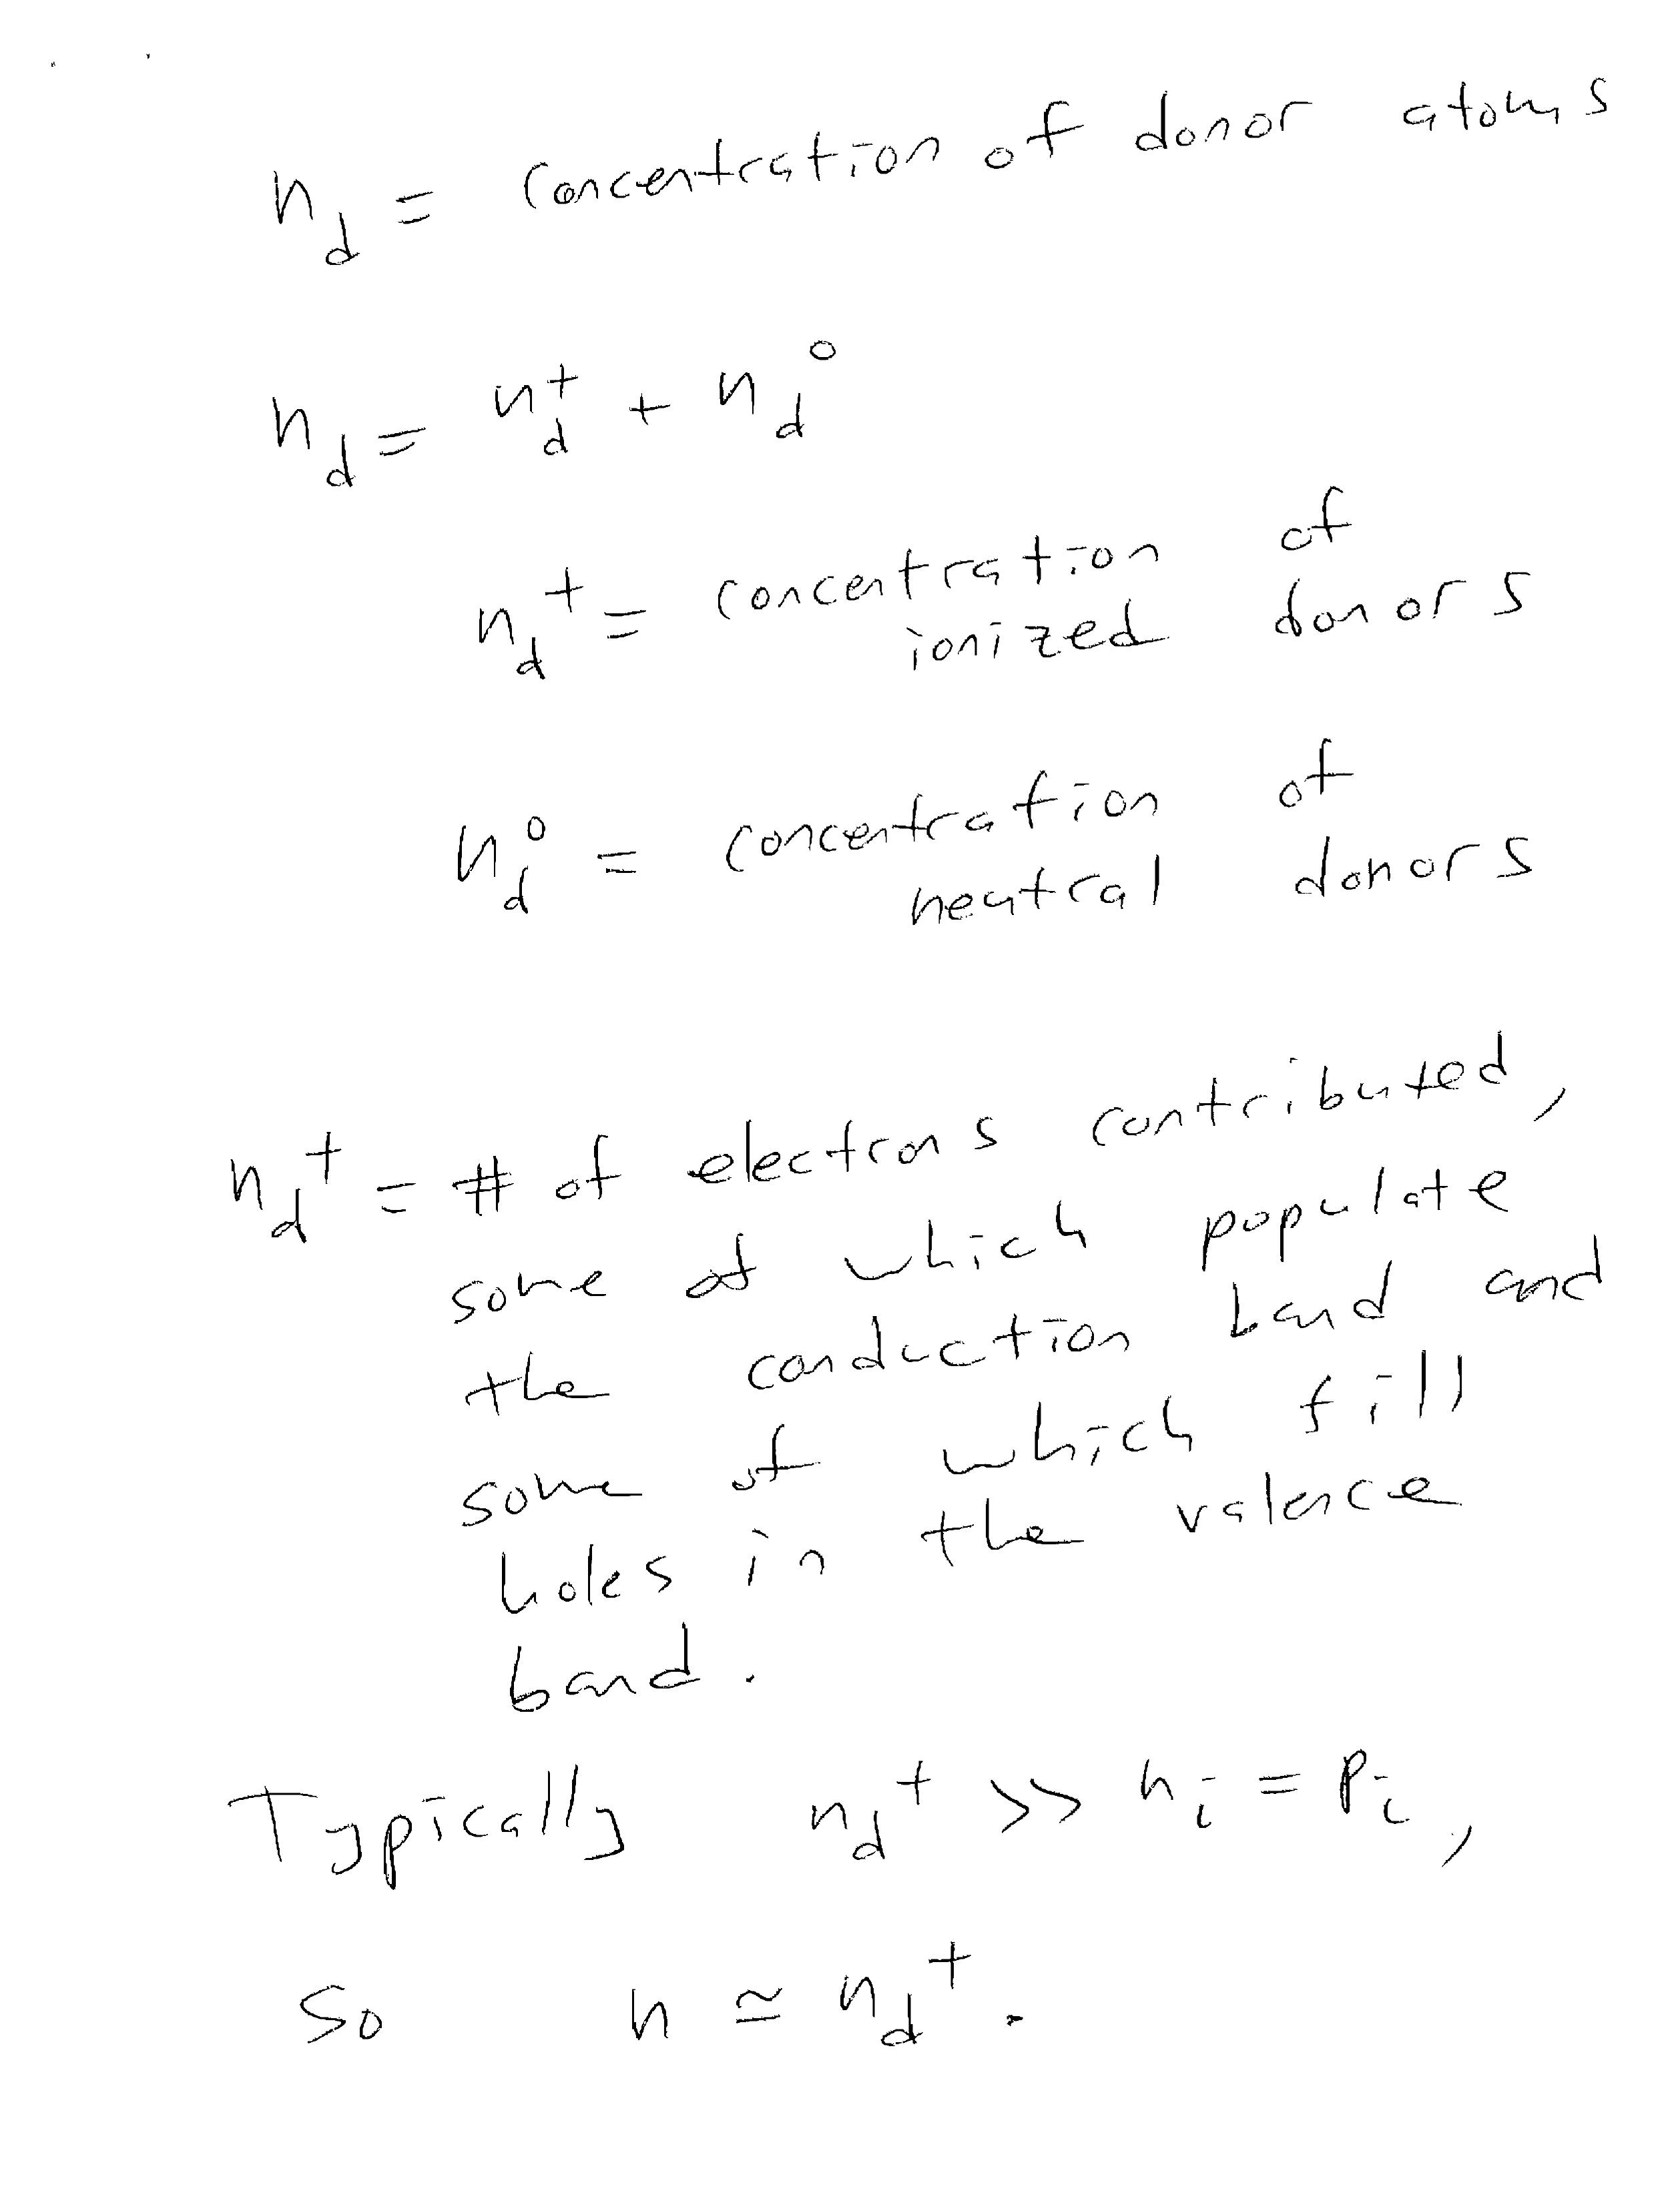 n_d = concentration of donor atoms
n_d = n_d^+ + n_d^0
n_d^+ = concentration of
ionized donors
n_d^0 = concentration of
neutral donors
n_d^+ = # of electrons contributed,
some of which populate
the conduction band and
some of which fill
holes in the valence
band.
Typically n_d^+ >> n_i = p_i,
so n ≃ n_d^+.